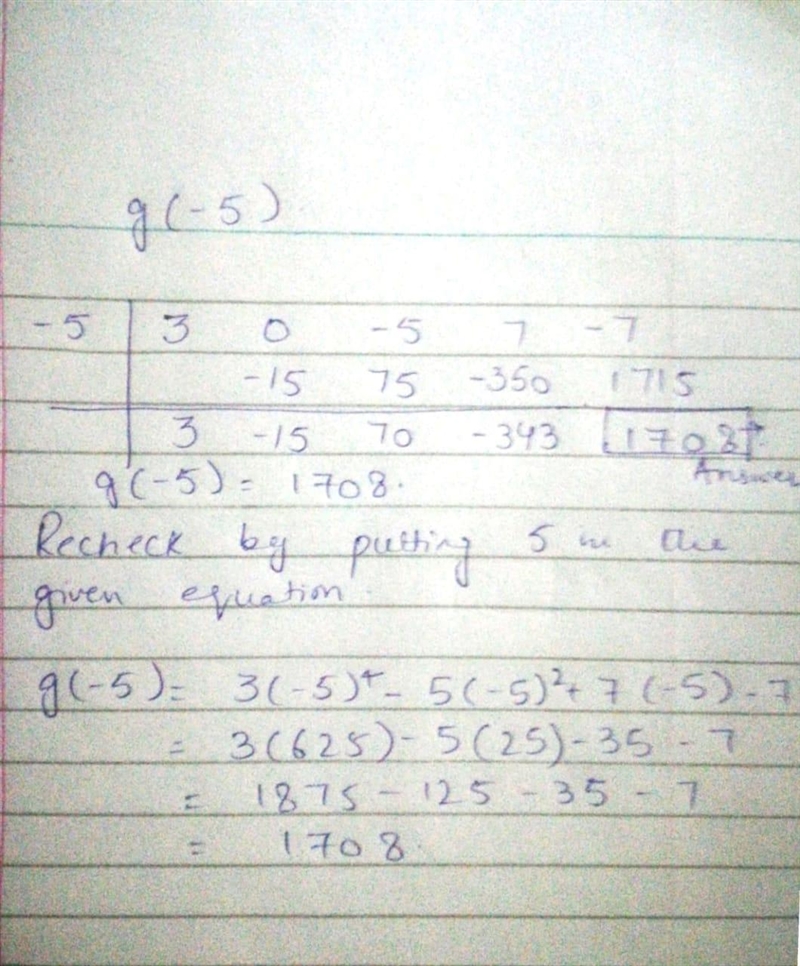 g(-5)
-5 | 3 0 -5 7 -7
-15 75 -350 1715
3 -15 70 -343 1708
Answer
g(-5) = 1708.
Recheck by putting 5 in the
given equation.
g(-5) = 3(-5)⁴ - 5(-5)² + 7(-5) - 7
= 3(625) - 5(25) - 35 - 7
= 1875 - 125 - 35 - 7
= 1708.